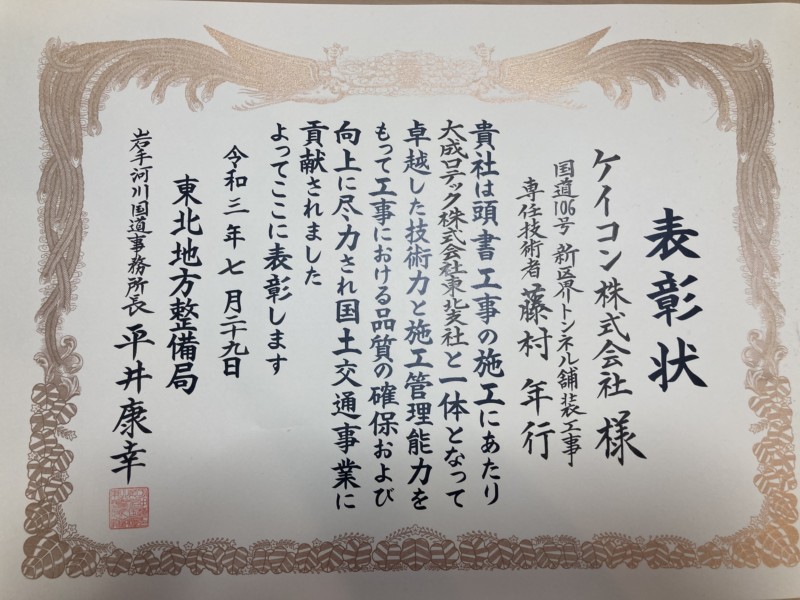 表彰状
ケイコン株式会社 様
国道106号 新区界トンネル舗装工事
専任技術者 藤村 年行
貴社は頭書工事の施工にあたり
大成ロテック株式会社東北支社と一体となって
卓越した技術力と施工管理能力を
もって工事における品質の確保および
向上に尽力され国土交通事業に
貢献されました
よってここに表彰します
令和三年七月二十九日
東北地方整備局
岩手河川国道事務所長 平井康幸